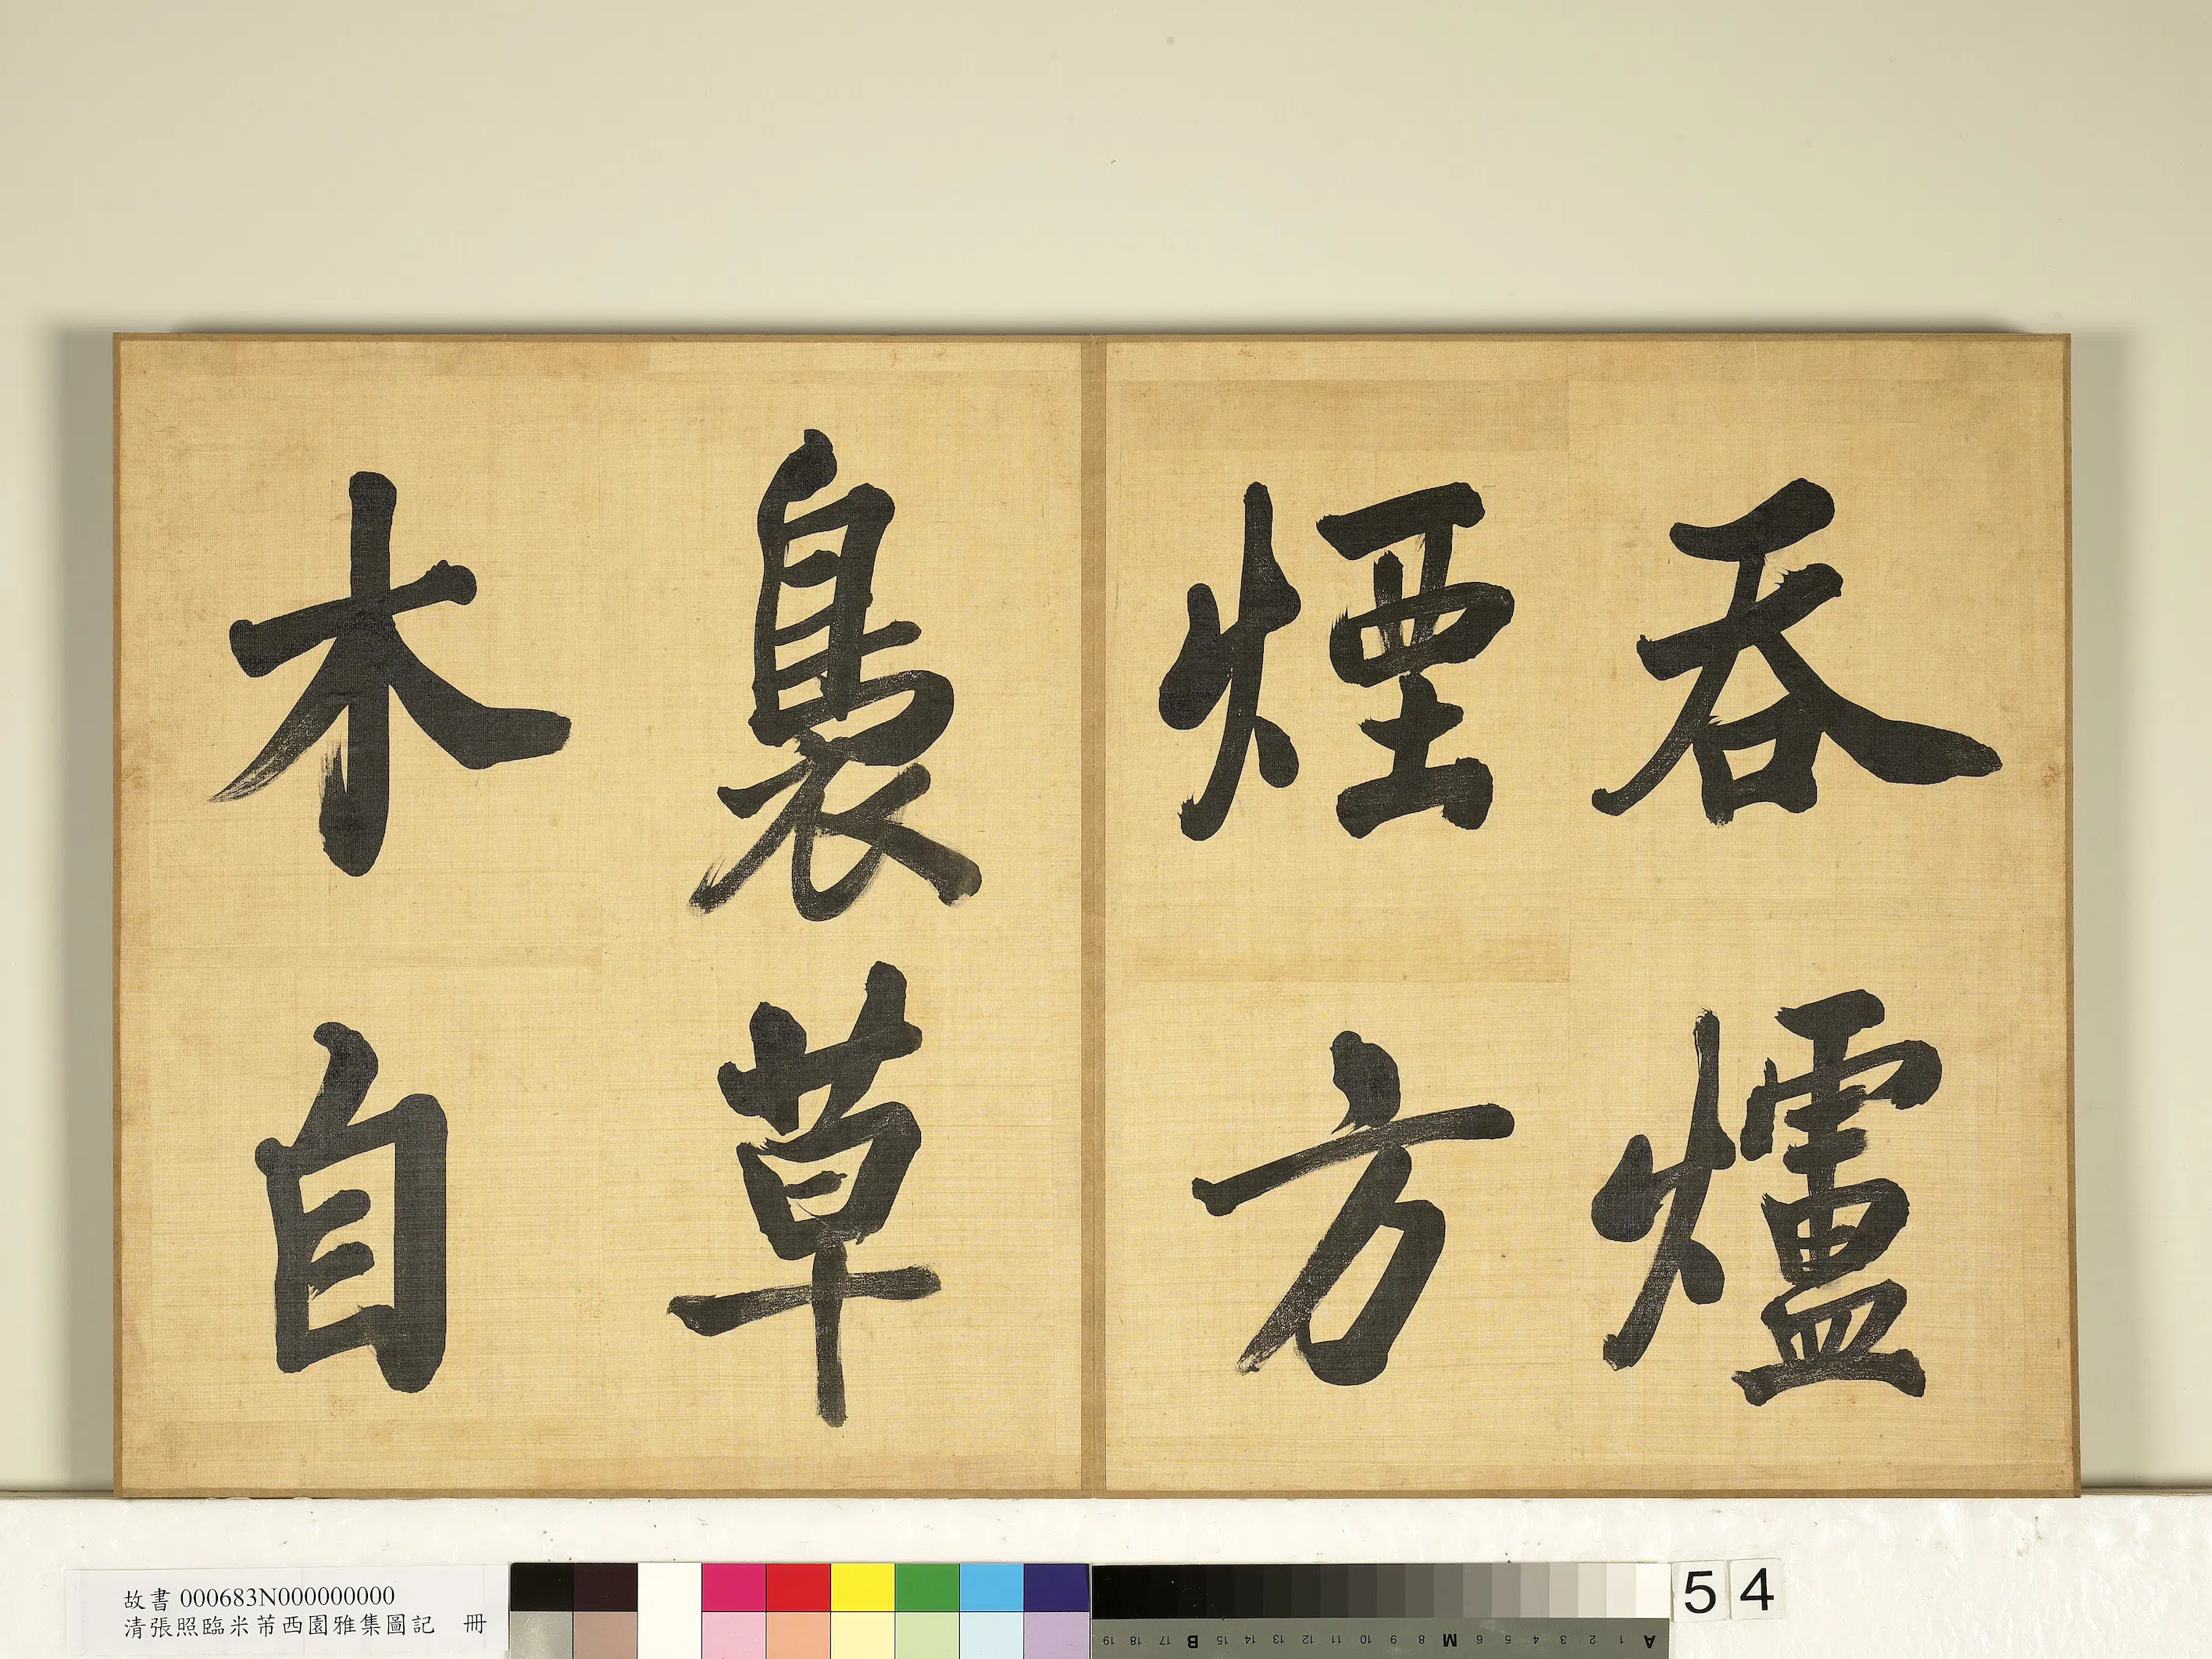 吞爐
煙方
裊草
木自
故書 000683N000000000
清張照臨米芾西園雅集圖記 冊
54
A 1 2 3 4 5 6 M 8 9 10 11 12 13 14 15 B 17 18 19